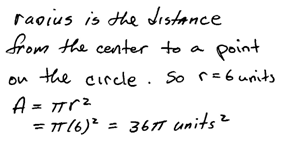 radius is the distance
from the center to a point
on the circle. So r = 6 units
A = πr²
= π(6)² = 36π units²